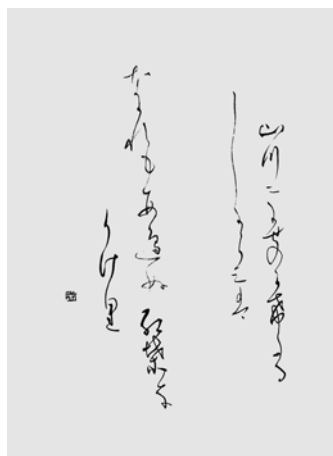 山川に風のかけたる
しがらみは
ながれもあへぬ紅葉な
りけり